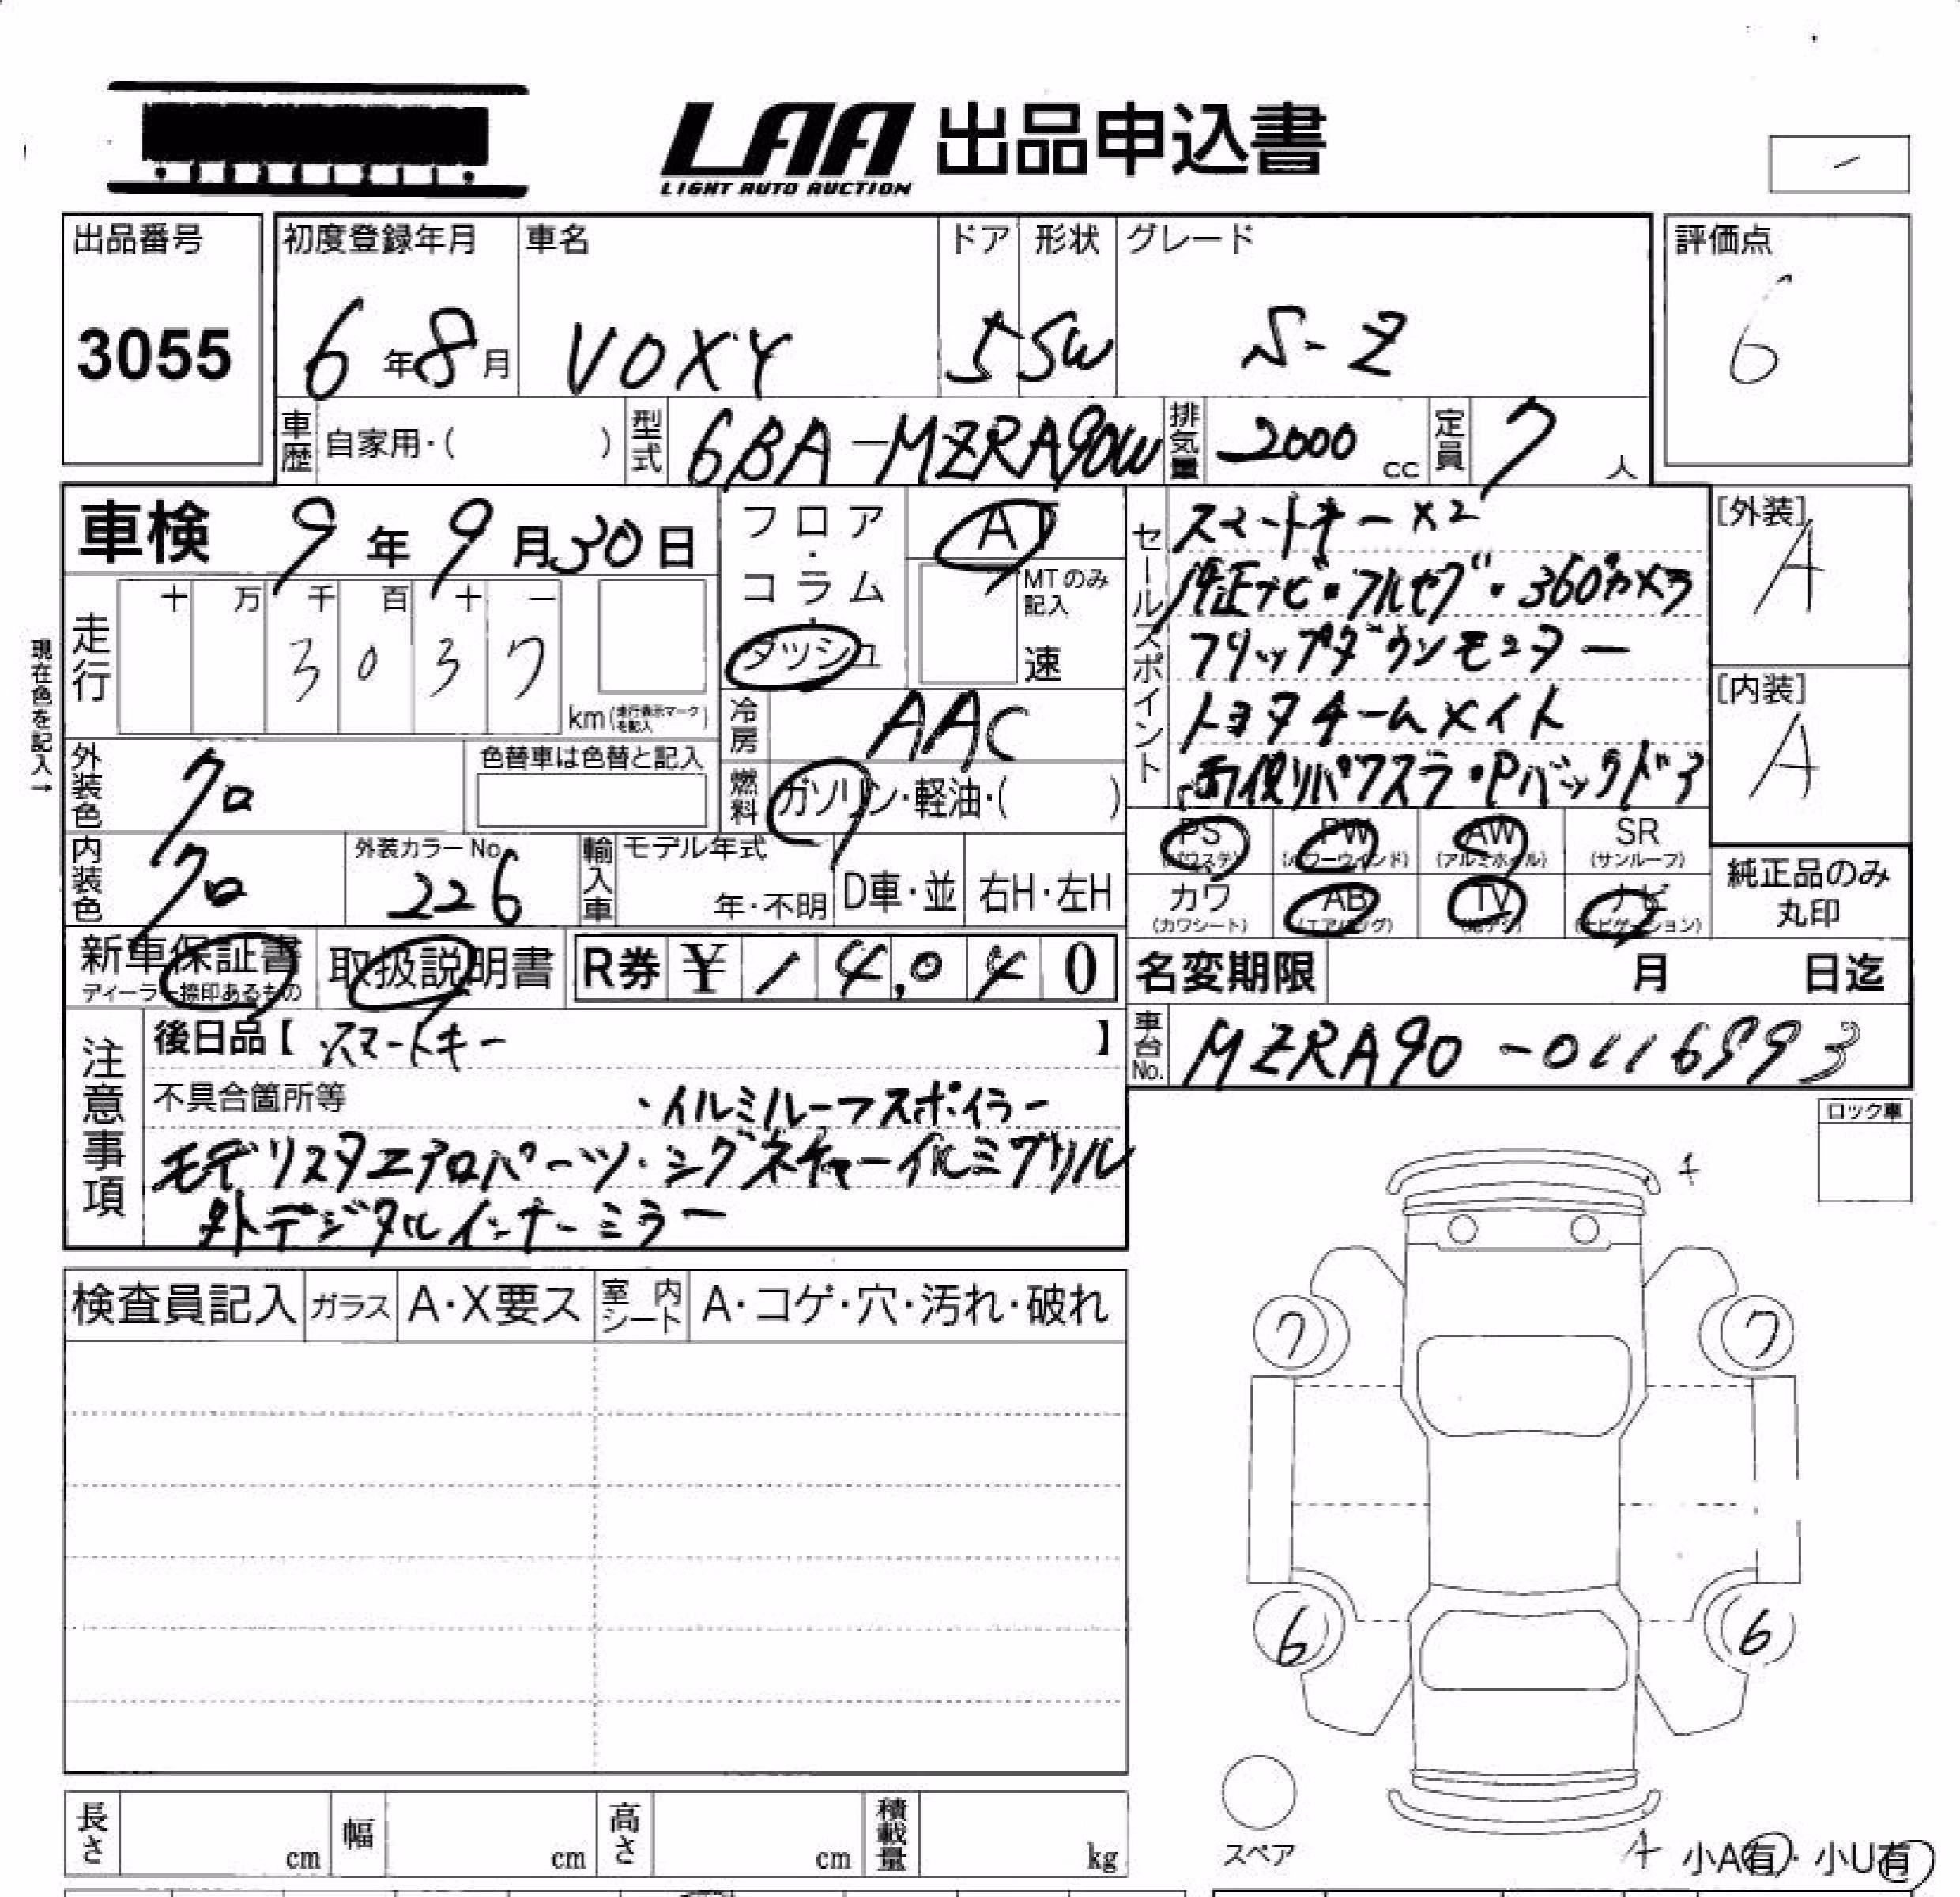 LAA 出品申込書
LIGHT AUTO AUCTION
出品番号 初度登録年月 車名 ドア 形状 グレード 評価点
3055 6年8月 VOXY 5 SW S-Z 6
車歴 自家用・( ) 型式 6BA-MZRA90W 排気量 2000 cc 定員 7 人
車検 9年9月30日
フロア・コラム・ダッシュ
AT
MTのみ記入
速
現在色を記入→
走行 十 万 千 百 十 一
3 0 3 7
km(走行表示マークを記入)
冷房 AAC
燃料 ガソリン・軽油・( )
外装色 クロ 色替車は色替と記入
内装色 クロ 外装カラーNo. 226
輸入車 モデル年式 年・不明 D車・並 右H・左H
セールスポイント
スマートキー×2
純正ナビ・フルセグ・360°カメラ
フリップダウンモニター
トヨタチームメイト
両側パワスラ・Pバックドア
[外装] A
[内装] A
PS PW AW SR
(パワステ) (パワーウィンド) (アルミホイル) (サンルーフ)
カワ AB TV ナビ
(カワシート) (エアバッグ) (ナビゲーション)
純正品のみ丸印
新車保証書 取扱説明書 R券 ¥14,040
ディーラー捺印あるもの
名変期限 月 日迄
車台No. MZRA90-0116593
注意事項
後日品【スマートキー】
不具合箇所等 ・イルミルーフスポイラー
モデリスタエアロパーツ・シグネチャーイルミグリル
外デジタルインナーミラー
ロック車
検査員記入 ガラス A・X要ス 室内シート A・コゲ・穴・汚れ・破れ
7 7
6 6
スペア
小A有・小U有
長さ cm 幅 cm 高さ cm 積載量 kg